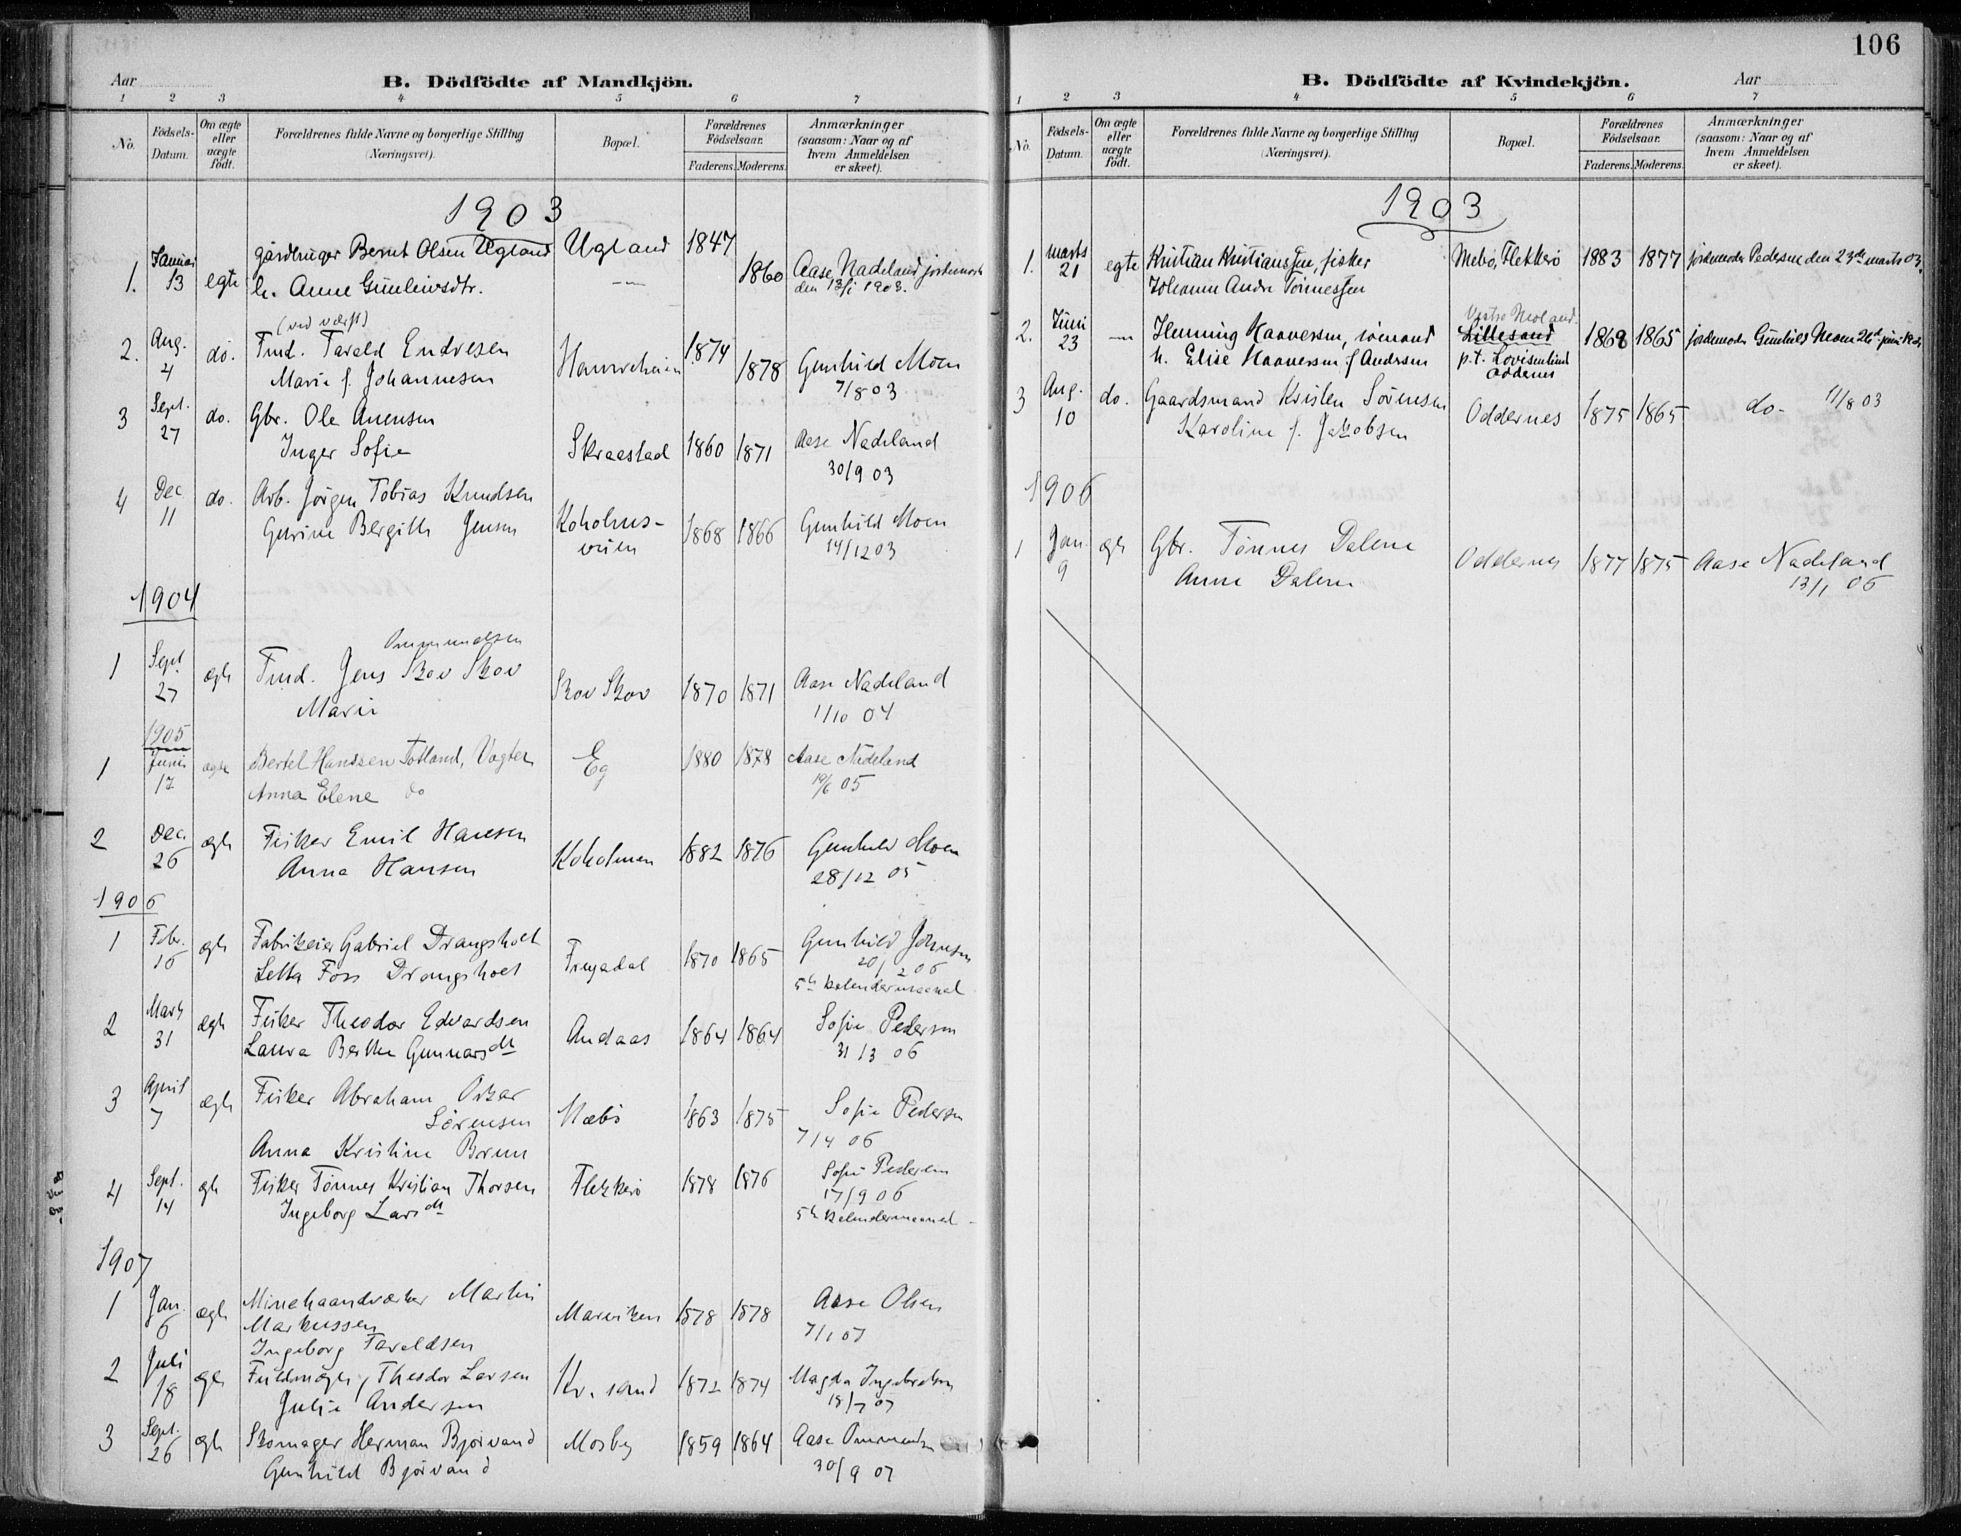 106
Aar
B. Dödfödte af Mandkjön.
1 2 3 4 5 6 7
No.
Födsels-Datum.
Om ægte eller uægte födt.
Forældrenes fulde Navne og borgerlige Stilling (Næringsvei).
Bopæl.
Forældrenes Födselsaar.
Faderens. Moderens.
Anmærkninger (saasom: Naar og af hvem Anmeldelsen er skeet).
1903
1. Januar 13 egte gårdbruger Bernt Olsen Ugland Ugland 1847
h. Anne Gunleivsdtr. — 1860 Aase Nadeland jordemoder
den 13/1 1903.
(ved værft)
2. Aug. 4 do. Tmd. Tarald Endresen Hamreheien 1874
Marie f. Johannesen 1878 Gunhild Moen
7/8 03
3 Sept. 27 do. Gbr. Ole Anensen
Inger Sofie Skraastad 1860 1871 Aase Nadeland
30/9 03
4 Dec 11 do. Arb. Jörgen Tobias Knudsen
Gurine Bergith Jensen Koholms-
veien 1868 1866 Gunhild Moen
14/12 03
1904
Ommundsen
1 Sept 27 ægte Tmd. Jens Skov Skov
Marie Skov Skov 1870 1871 Aase Nadeland
1/10 04
1905
1 Juni 17 ægte Bertel Hanssen Totland, Vogter Eg 1880 1878 Aase Nadeland
Anna Elene do 19/6 05
2 Dec. 26 ægte Fisker Emil Hansen
Anna Hansen Koholmen 1882 1876 Gunhild Moen
28/12 05
1906
1 Febr. 16 ægte Fabrikeier Gabriel Drangsholt
Letta Foss Drangsholt Frejadal 1870 1865 Gunhild Johnsen
20/2 06
5te kalendermaaned
2 Marts 31 ægte Fisker Theodor Edvardsen
Laura Berthe Gunnarsdt Andaas 1864 1864 Sofie Pedersen
31/3 06
3 April 7 ægte Fisker Abraham Oskar
Sörensen
Anna Kristine Brun Mæbö 1863 1875 Sofie Pedersen
7/4 06
4 Sept. 14 ægte Fisker Tönnes Kristian Thorsen
Ingeborg Larsdt Flekkerö 1878 1876 Sofie Pedersen
17/9 06
5te kalendermaaned
1907
1 Jan. 6 ægte Minehaandværker Martin
Markussen
Ingeborg Taraldsen Marviken 1878 1878 Aase Olsen
7/1 07
2 Juli 18 ægte Fuldmægt. Theodor Larsen
Julie Andersen Kr.sand 1872 1874 Magda Ingebretsen
18/7 07
3 Sept. 26 ægte Skomager Herman Björvand
Gunhild Bjørvand Mosby 1859 1864 Aase Ommundsen
30/9 07
B. Dödfödte af Kvindekjön.
Aar
1 2 3 4 5 6 7
No.
Födsels-Datum.
Om ægte eller uægte födt.
Forældrenes fulde Navne og borgerlige Stilling (Næringsvei).
Bopæl.
Forældrenes Födselsaar.
Faderens. Moderens.
Anmærkninger (saasom: Naar og af hvem Anmeldelsen er skeet).
1903
1. marts 21 egte Kristian Kristianssen, fisker Mebö, Flekkerö 1883 1877 jordemoder Pedersen den 23de marts 03.
Johanne Andr Tönnessen
Vestre Moland
2. Juni 23 — Henning Haaversen, sömand Lillesand 1868 1865 jordemoder Gunhild Moen 26d juni 1903
h. Elise Haaversen f Andersen p.t. Lovisenlund
Oddernes
3 Aug. 10 do. Gaardsmand Kristen Sörensen
Karoline f. Jakobsen Oddernes 1875 1865 do- 11/8 03
1906
1 Jan. 9 ægte Gbr. Tönnes Dalene
Anne Dalene Oddernes 1877 1875 Aase Nadeland
13/1 06